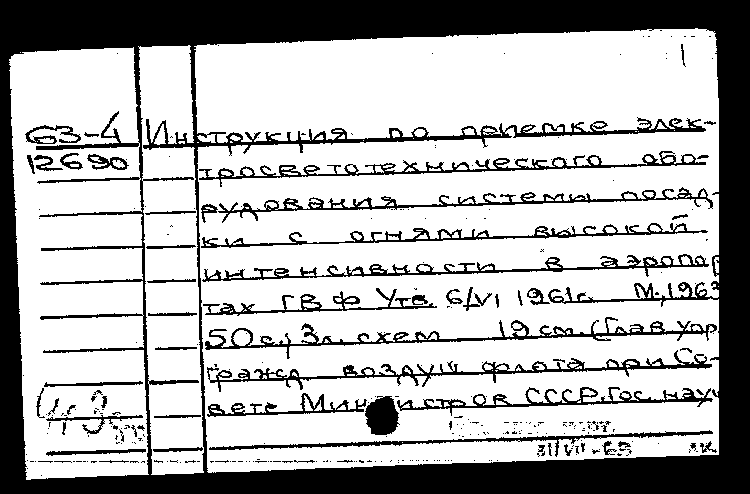 1
63-4 Инструкция по приемке элек-
12690 тросветотехнического обо-
рудования системы посад-
ки с огнями высокой
интенсивности в аэропор
тах ГВФ Утв. 6/VI 1961г. М., 1963
50 с.; 3 л. схем 19 см. (Глав упр.
гражд. воздуш флота при Со-
вете Министров СССР. Гос. науч
31/VII-63